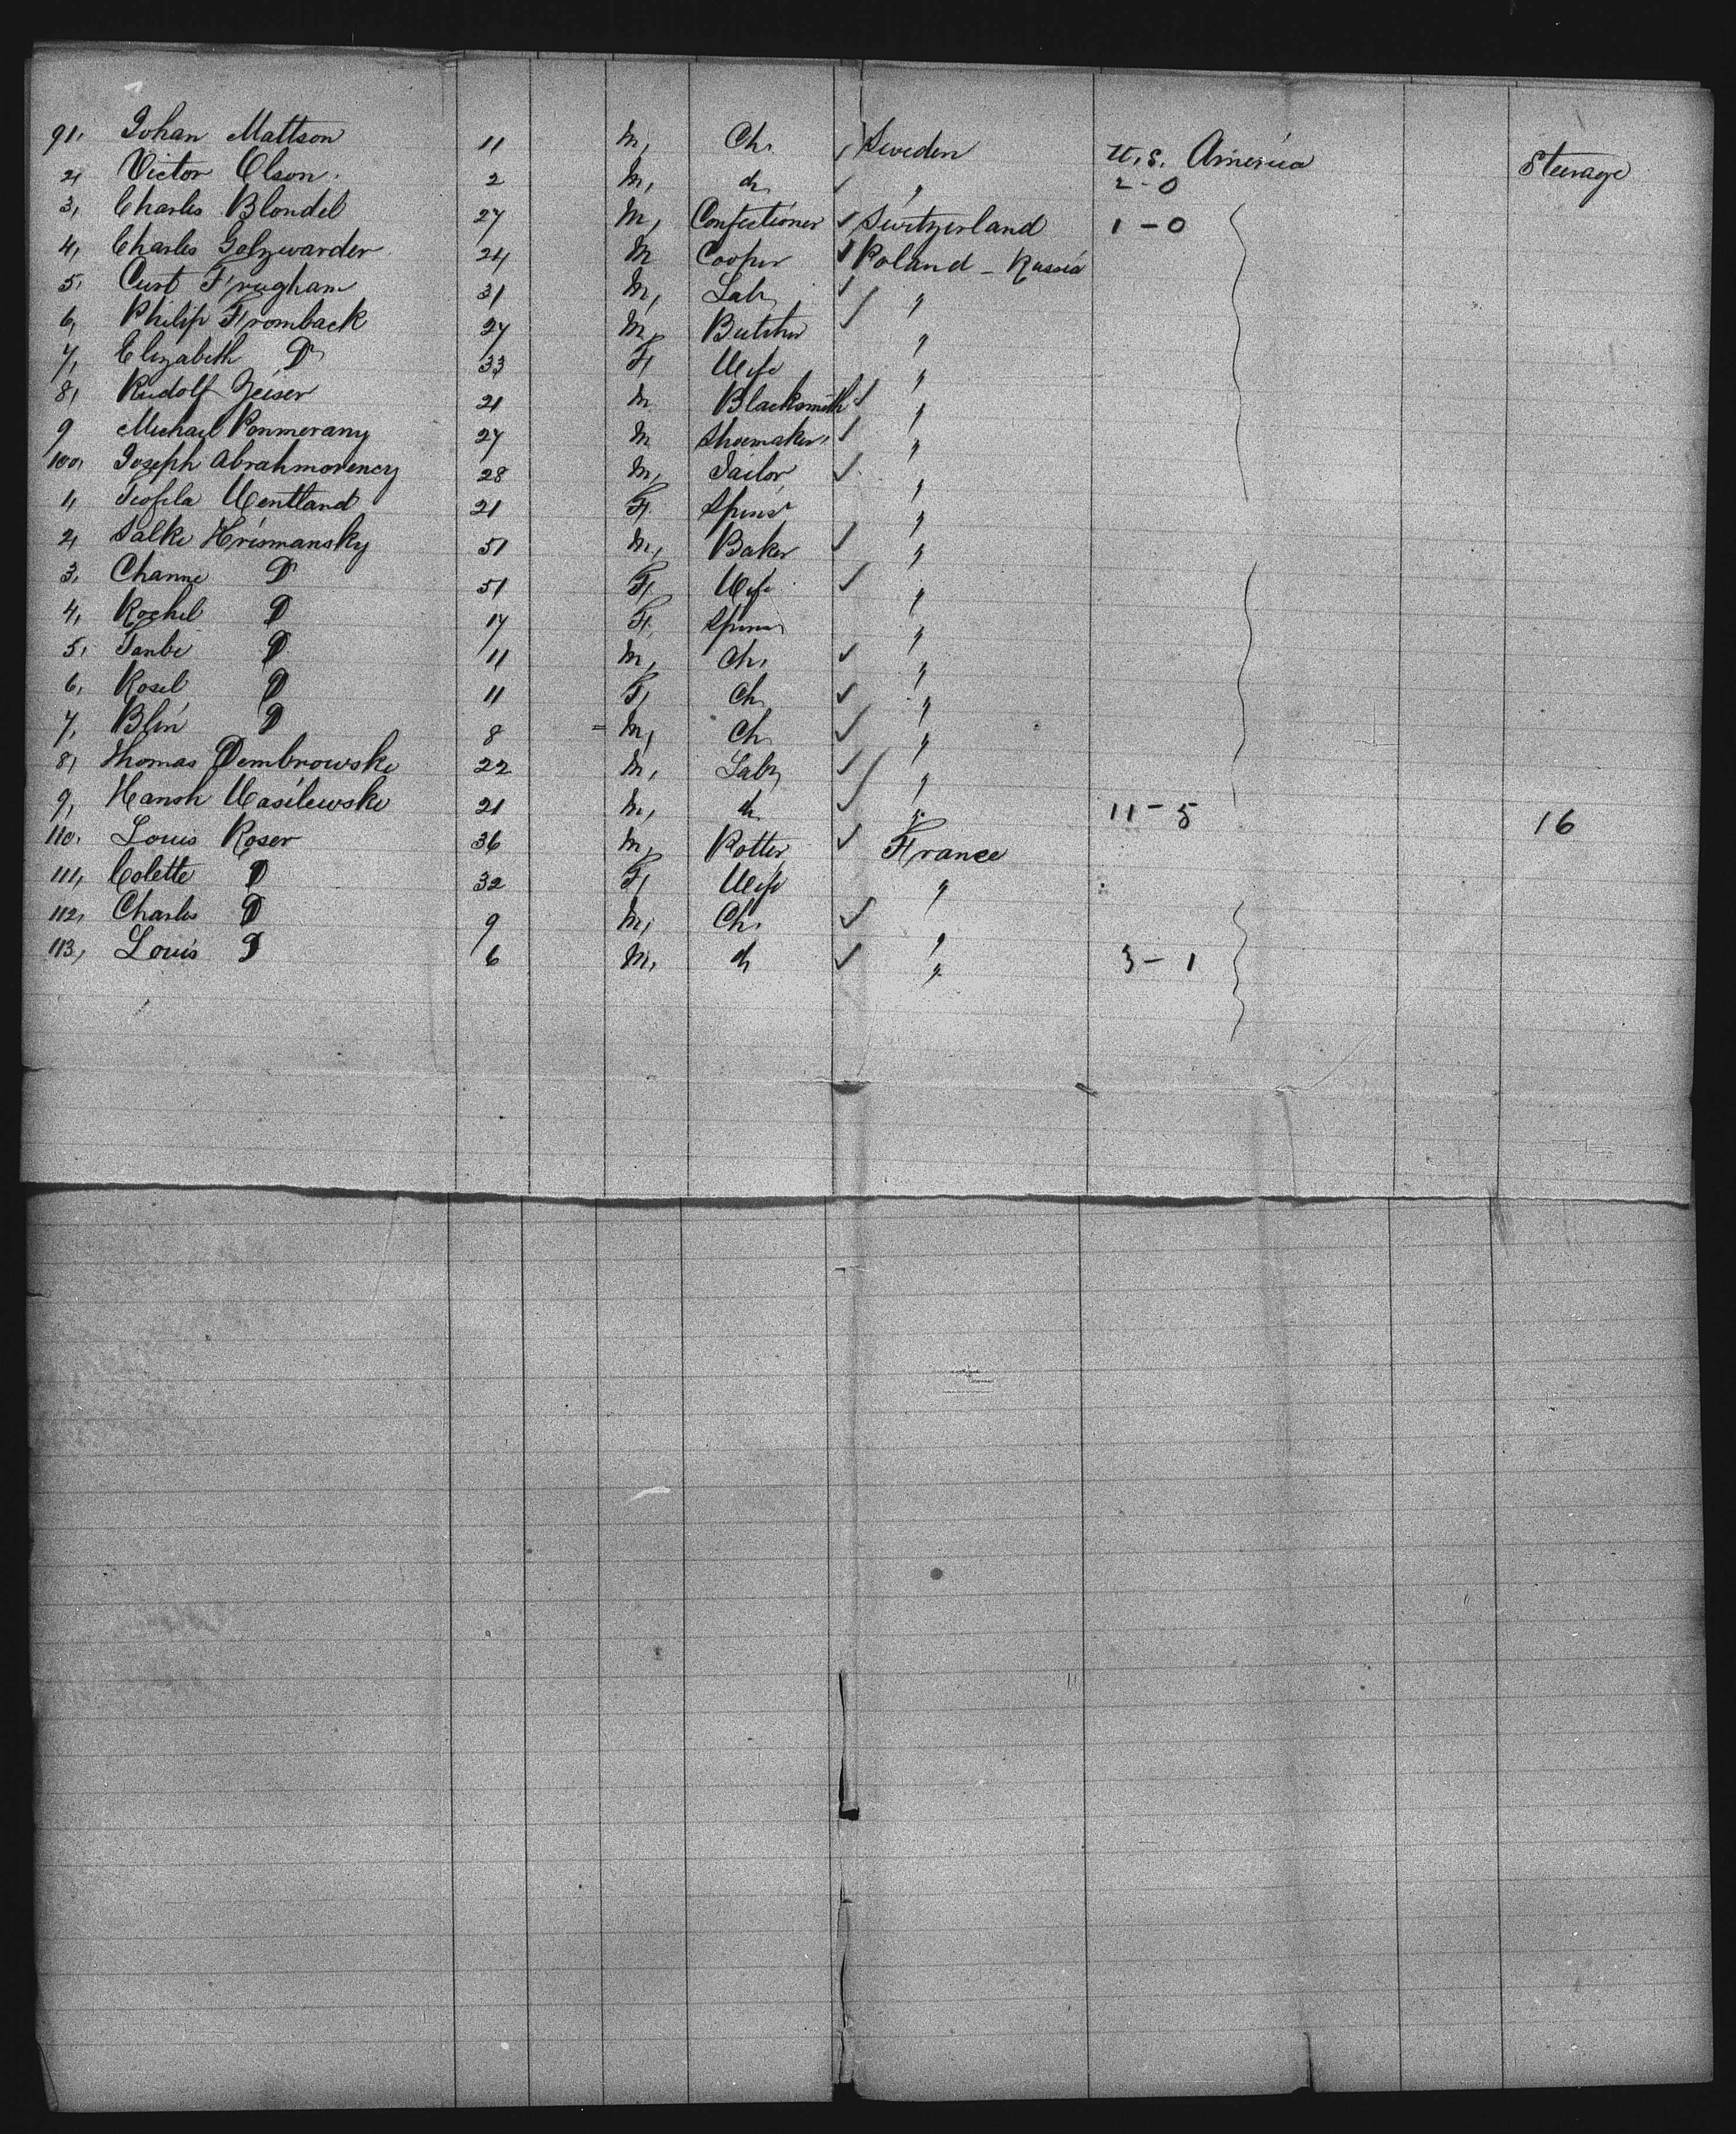 91, Johan Mattson 11 M, Ch. Sweden U.S. America Steerage
2, Victor Olson 2 M, do " 2-0
3, Charles Blondel 27 M, Confectioner Switzerland 1-0
4, Charles Golzwarder 24 M Cooper Poland - Russia
5, Curt 31 M, Labr "
6, Philip Fromback 27 M, Butcher "
7, Elizabeth D 33 F, Wife "
8, Rudolf Zeiser 21 M Blacksmith "
9 Michael Pommerany 27 M Shoemaker "
100, Joseph Abrahmovency 28 M, Tailor "
1, Teofila Wentland 21 F. Spins "
2, Salke Hrismansky 51 M, Baker "
3, Channe D 51 F, Wife "
4, Rochel D 17 F, Spins "
5, Taube D 11 M, Ch. "
6, Rosel D 11 F, Ch "
7, Blin D 8 M, Ch "
8, Thomas Dembrowske 22 M, Labr "
9, Hansh Wasilewske 21 M, do " 11-5 16
110, Louis Roser 36 M, Potter France
111, Colette D 32 F, Wife "
112, Charles D 9 M, Ch. "
113, Louis D 6 M, do " 3-1